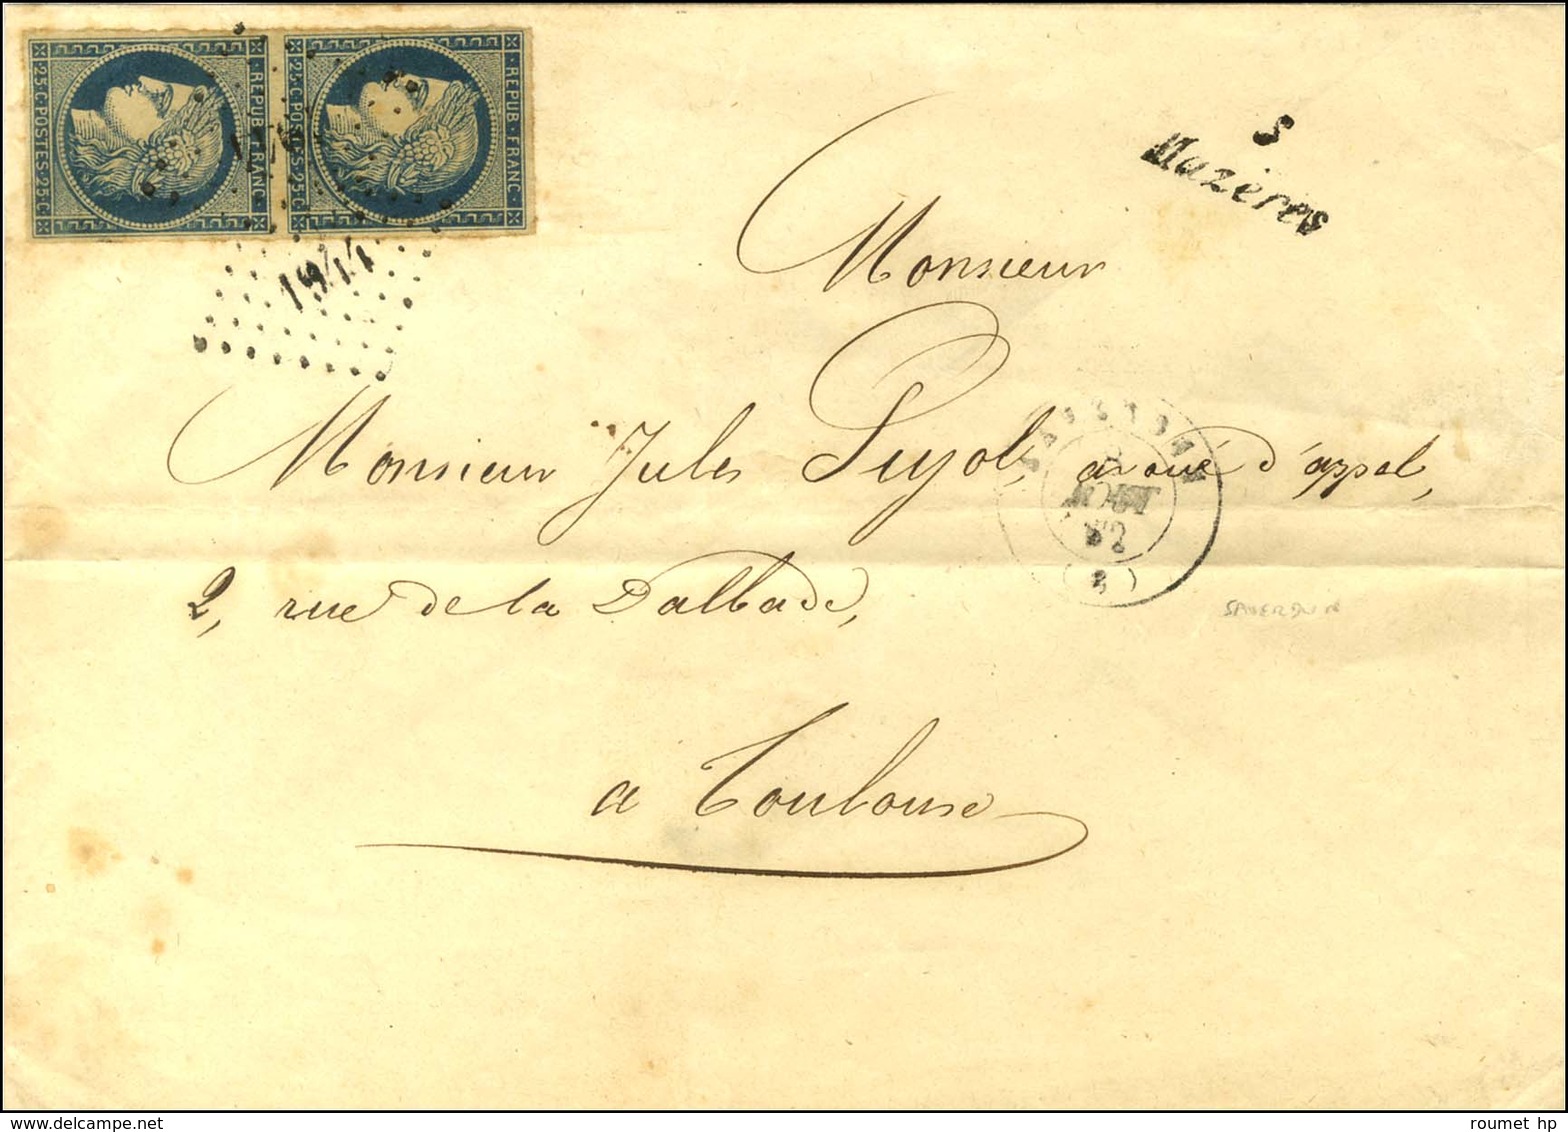 25·C·POSTES·25·C
REPUB·FRANC
25·C·POSTES·25·C
·REPUB·FRANC·
1944
5
Mazères
Monsieur
Monsieur Jules Pujol, avoué d'appel,
AOUT
52
(8)
2, rue de la Dalbade,
SAVERDUN
a Toulouse
roumet hp